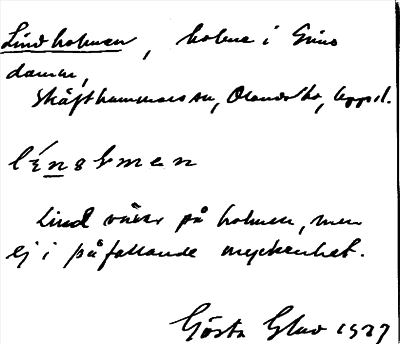 Lindholmen, holme i Gimo
damm,
Skäfthammars sn, Olands hd, Uppsl.
lí́nsḥmen
Lind växer på holmen, men
ej i påfallande myckenhet.
Gösta Glav 1927